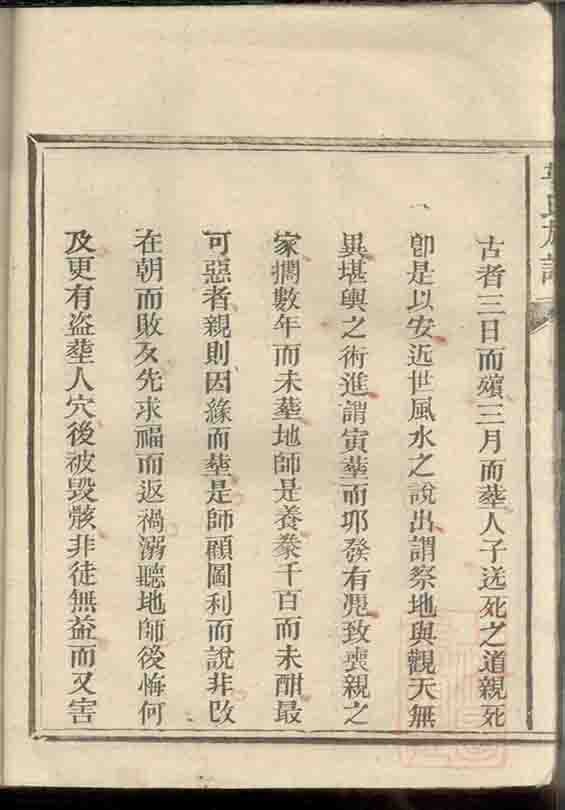 古者三日而殯三月而塟人子送死之道親死
卽是以安近世風水之說出謂察地與觀天無
異堪輿之術進謂寅塟而邜發有覓致喪親之
家擱數年而未塟地師是養豢千百而未酣最
可惡者親則因緣而塟是師顧圖利而說非改
在朝而敗夊先求福而返禍溺聽地師後悔何
及更有盜塟人穴後被毀骸非徒無益而又害
氏族譜